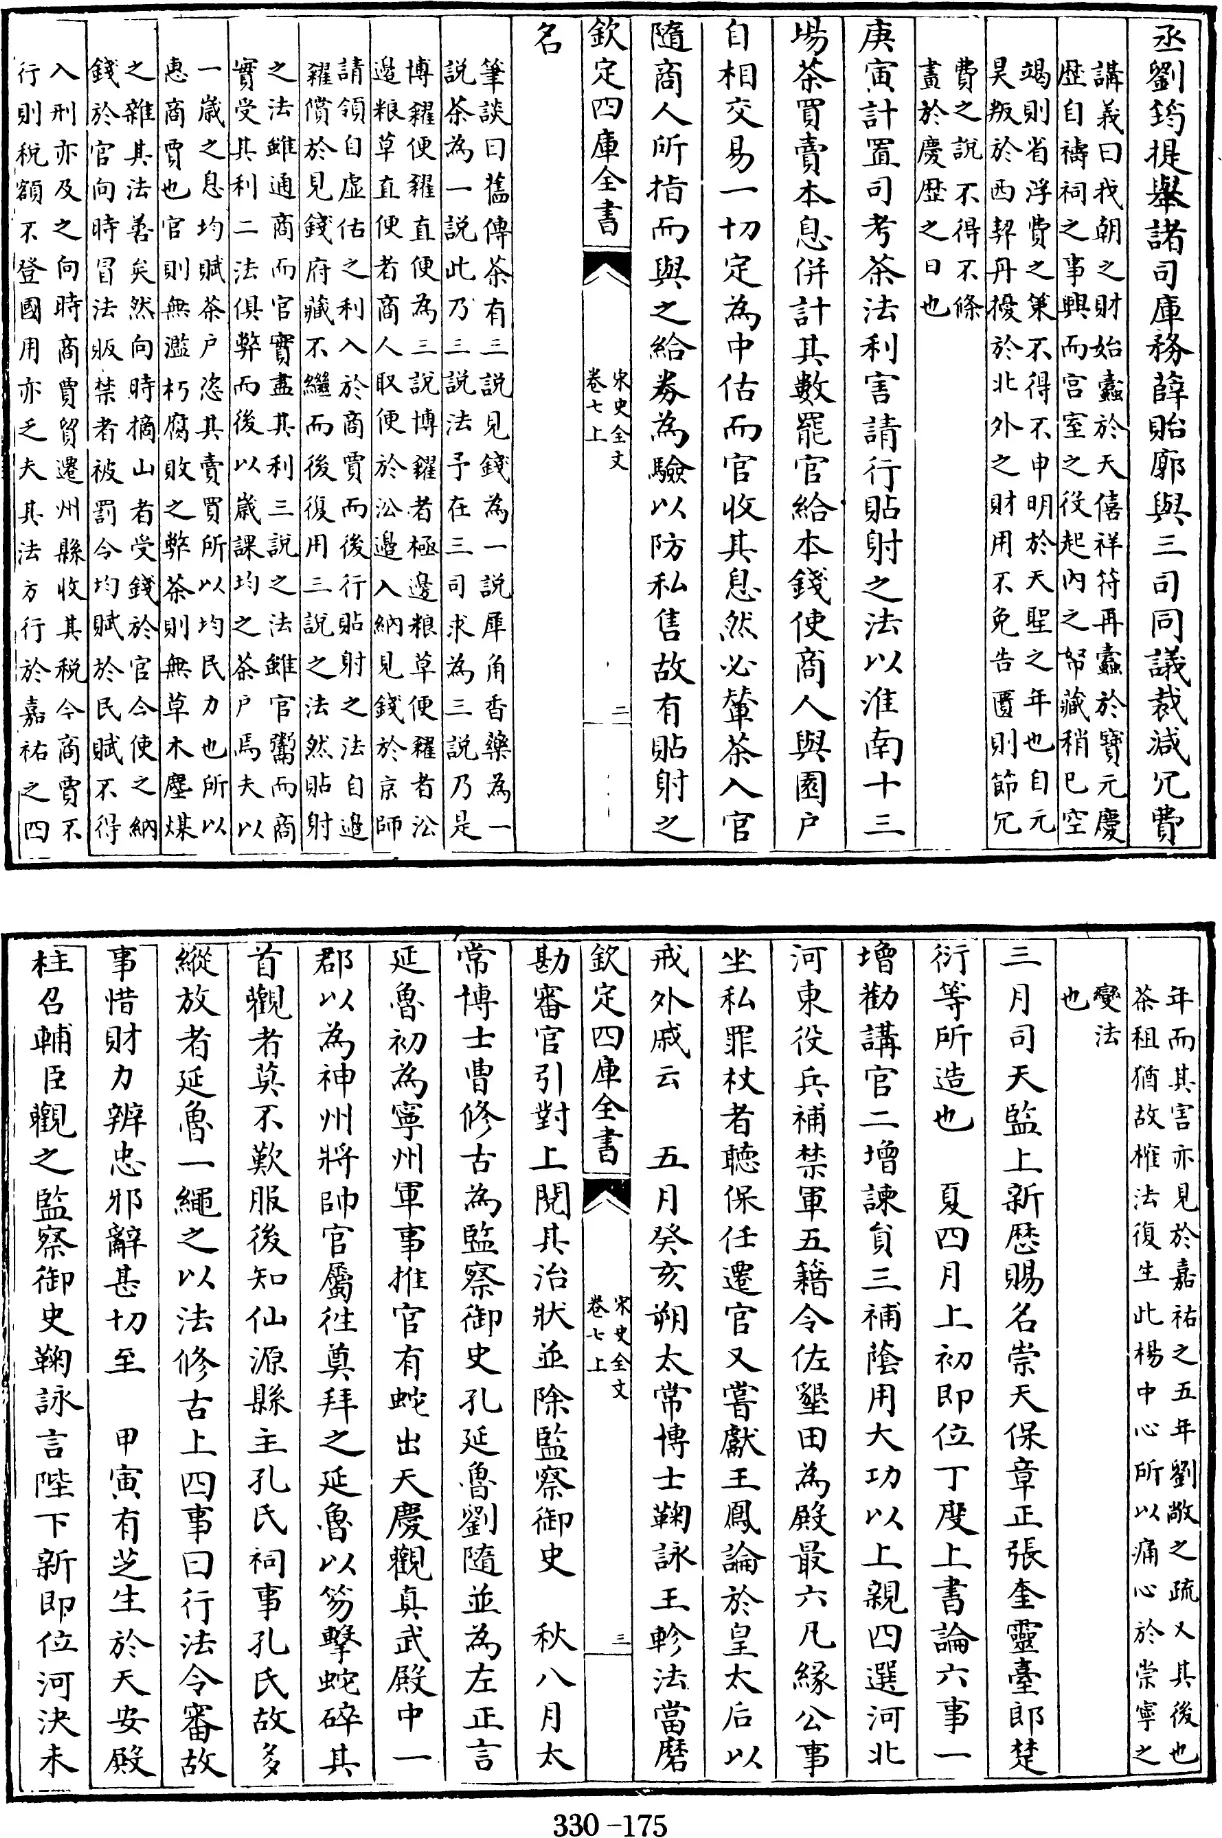 丞劉筠提舉諸司庫務薛貽廓與三司同議裁減冗費
講義曰我朝之財始蠹於天僖祥符再蠹於寶元慶
歴自禱祠之事興而宫室之役起内之帑藏稍已空
竭則省浮費之策不得不申明於天聖之年也自元
昊叛於西契丹擾於北外之財用不免告匱則節冗
費之說不得不條
畫於慶歴之日也
庚寅計置司考茶法利害請行貼射之法以淮南十三
場茶買賣本息併計其數罷官給本錢使商人與園户
自相交易一切定為中估而官收其息然必輦茶入官
隨商人所指而與之給券為驗以防私售故有貼射之
欽定四庫全書
宋史全文
卷七上
二
名
筆談曰舊傳茶有三説見錢為一説犀角香藥為一
説茶為一説此乃三説法予在三司求為三説乃是
博糴便糴直便為三説博糴者極邊粮草便糴者沿
邊粮草直便者商人取便於沿邊入納見錢於京師
請領自虚估之利入於商賈而後行貼射之法自邉
糴償於見錢府藏不繼而後復用三説之法然貼射
之法雖通商而官實盡其利三説之法雖官鬻而商
實受其利二法俱弊而後以嵗課均之茶户焉夫以
一嵗之息均賦茶户恣其賣買所以均民力也所以
惠商賈也官則無濫朽腐敗之弊茶則無草木塵煤
之雜其法善矣然向時摘山者受錢於官今使之納
錢於官向時冒法販禁者被罰今均賦於民賦不得
入刑亦及之向時商賈貿遷州縣收其税今商賈不
行則税額不登國用亦乏夫其法方行於嘉祐之四
年而其害亦見於嘉祐之五年劉敞之疏又其後也
茶租猶故榷法復生此楊中心所以痛心於崇寧之
變法
也
三月司天監上新歴賜名崇天保章正張奎靈臺郎楚
衍等所造也　夏四月上初即位丁度上書論六事一
增勸講官二增諫員三補䕃用大功以上親四選河北
河東役兵補禁軍五籍令佐墾田為殿最六凡緣公事
坐私罪杖者聽保任遷官又嘗獻王鳳論於皇太后以
戒外戚云　五月癸亥朔太常博士鞠詠王軫法當磨
欽定四庫全書
宋史全文
卷七上
三
勘審官引對上閲其治狀並除監察御史　秋八月太
常博士曹修古為監察御史孔延魯劉隨並為左正言
延魯初為寧州軍事推官有蛇出天慶觀真武殿中一
郡以為神州將帥官屬徃奠拜之延魯以笏擊蛇碎其
首觀者莫不歎服後知仙源縣主孔氏祠事孔氏故多
縱放者延魯一繩之以法修古上四事曰行法令審故
事惜財力辨忠邪辭甚切至　甲寅有芝生於天安殿
柱召輔臣觀之監察御史鞠詠言陛下新即位河決未
330-175